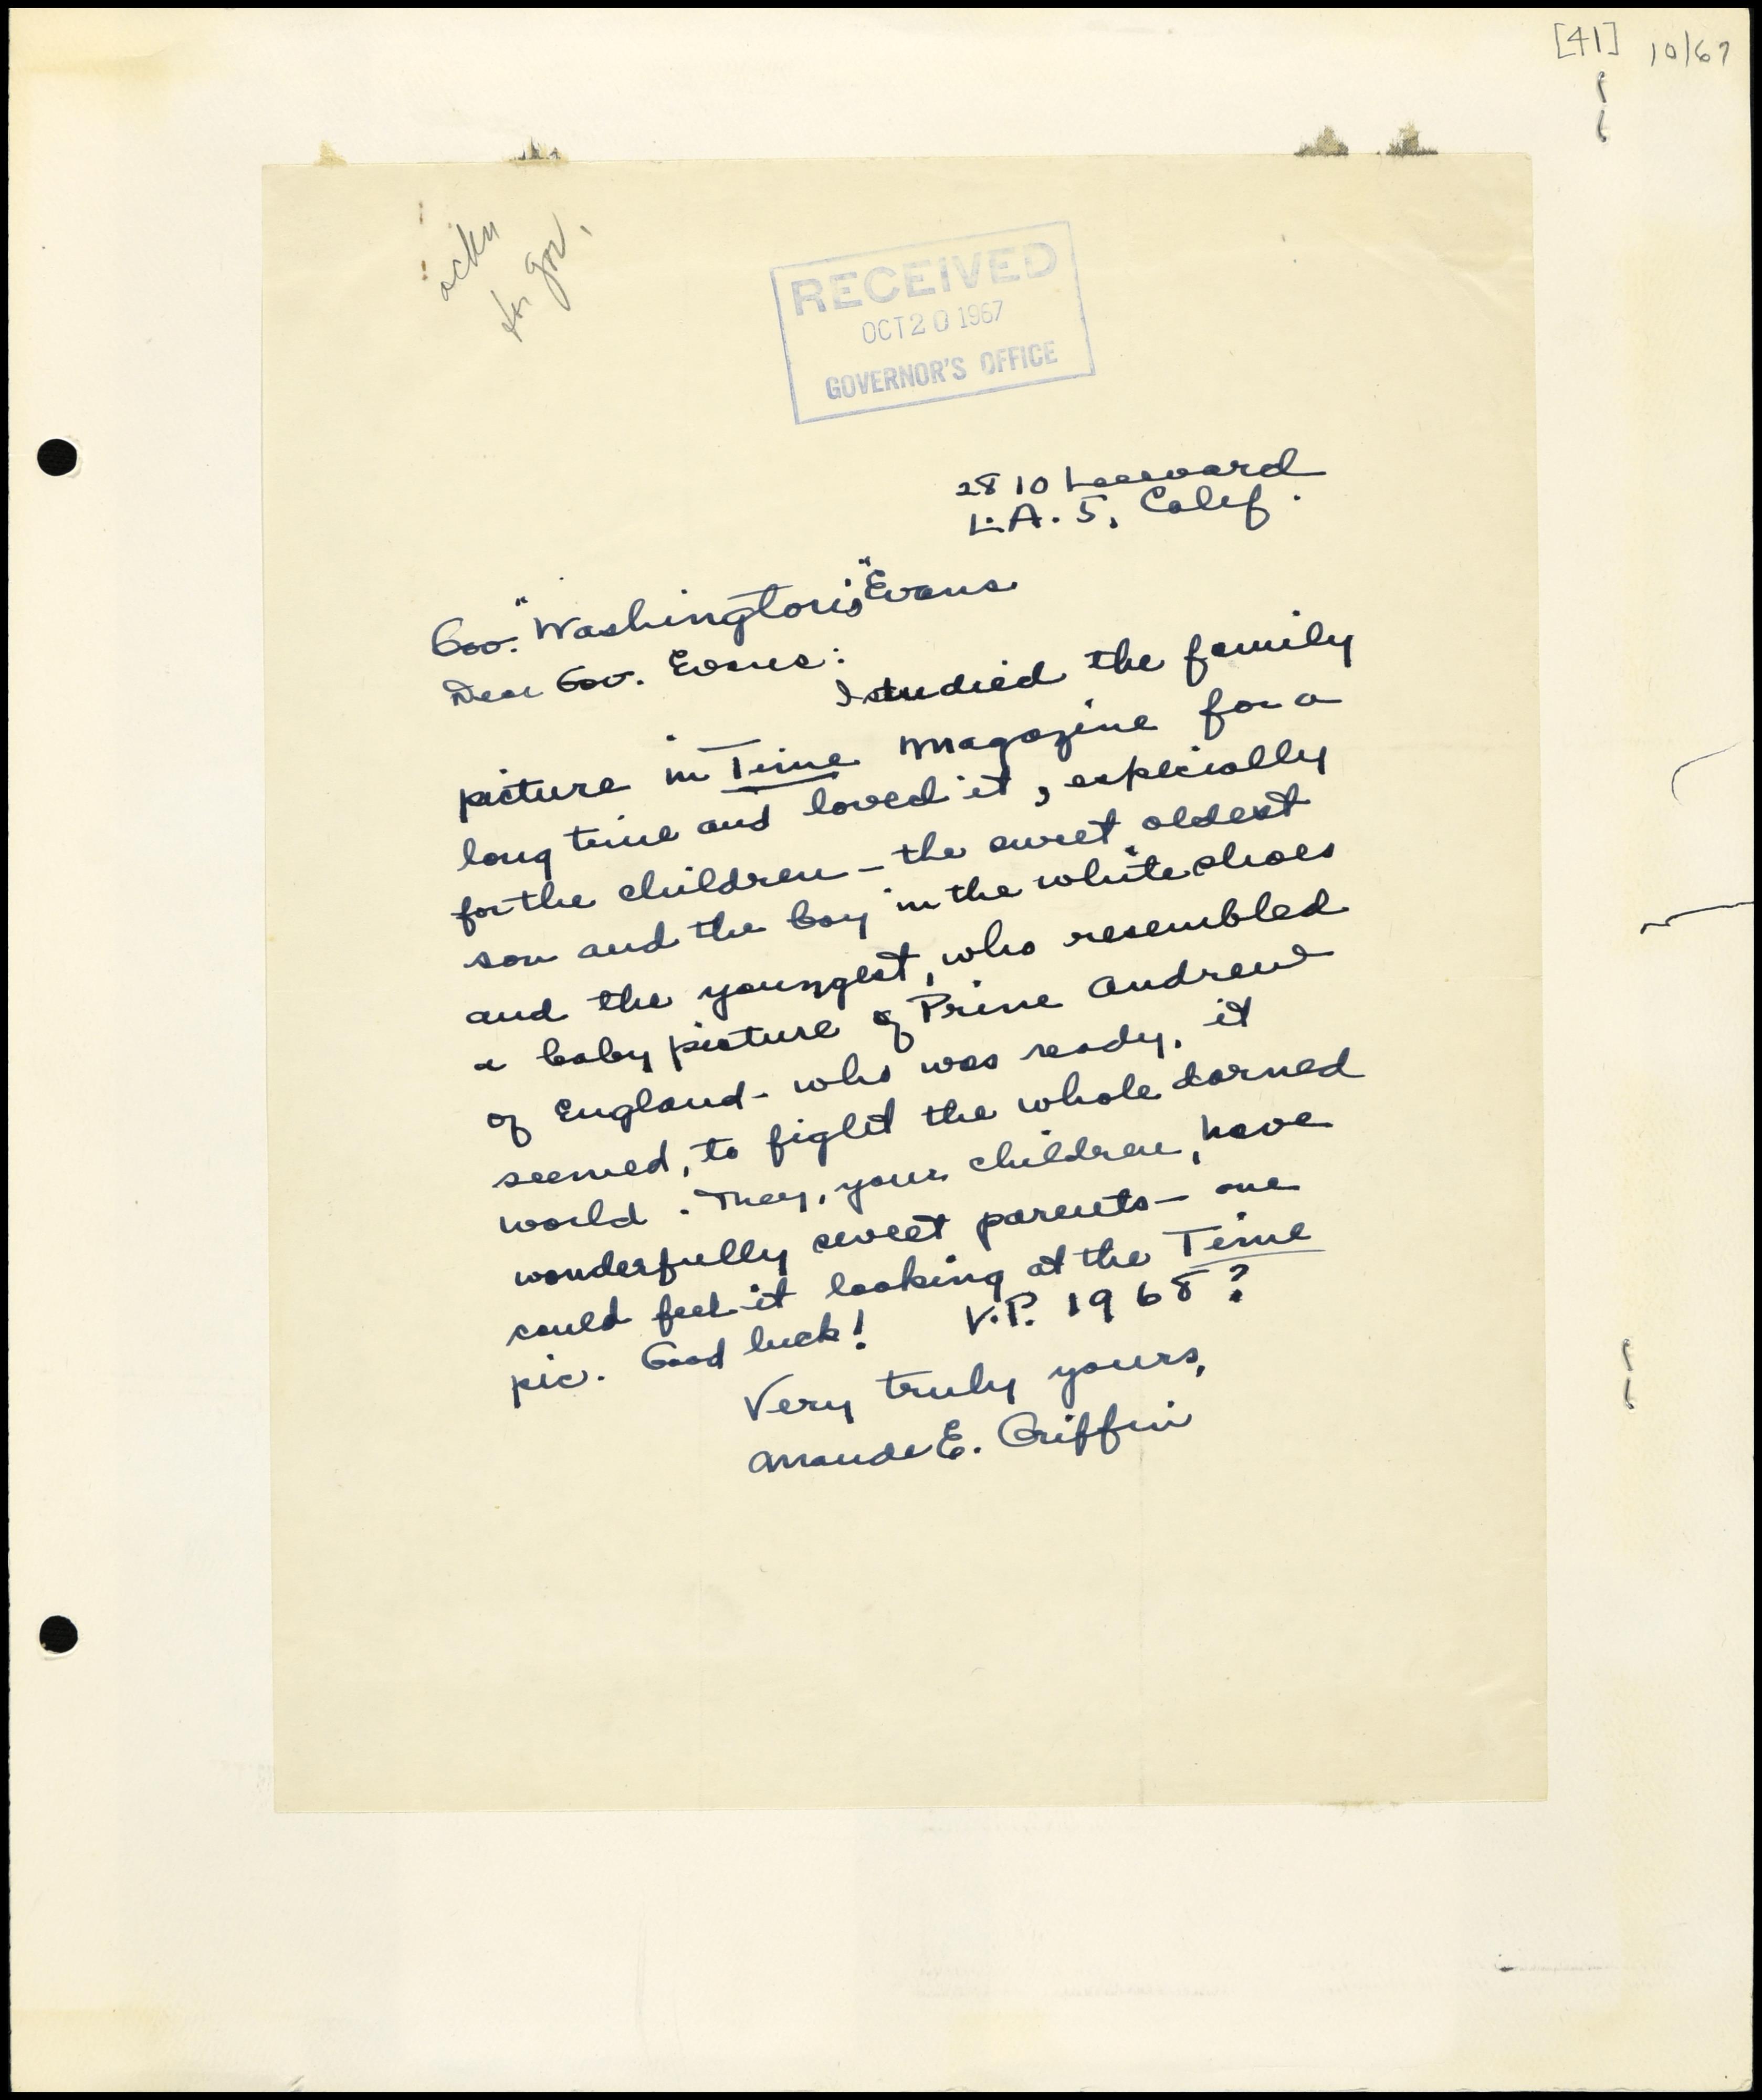 [41] 10/67
ackn
for gov.
RECEIVED
OCT 20 1967
GOVERNOR'S OFFICE
2810 Leeward
L.A. 5, Calif.
Gov. "Washington's" Evans
Dear Gov. Evans:
I studied the family
picture in Time Magazine for a
long time and loved it, especially
for the children - the sweet oldest
son and the boy in the white shoes
and the youngest, who resembled
a baby picture of Prine Andrew
of England - who was ready, it
seemed, to fight the whole darned
world. They, your children, have
wonderfully sweet parents - one
could feel it looking at the Time
pic. Good luck! V.P. 1968?
Very truly yours,
Maude E. Griffin